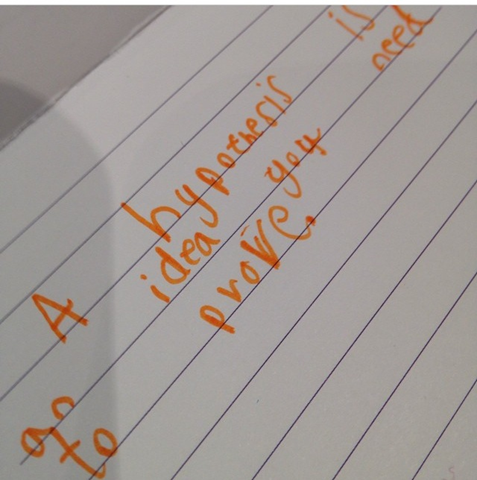 A hypothesis is
an idea you need
to prove.